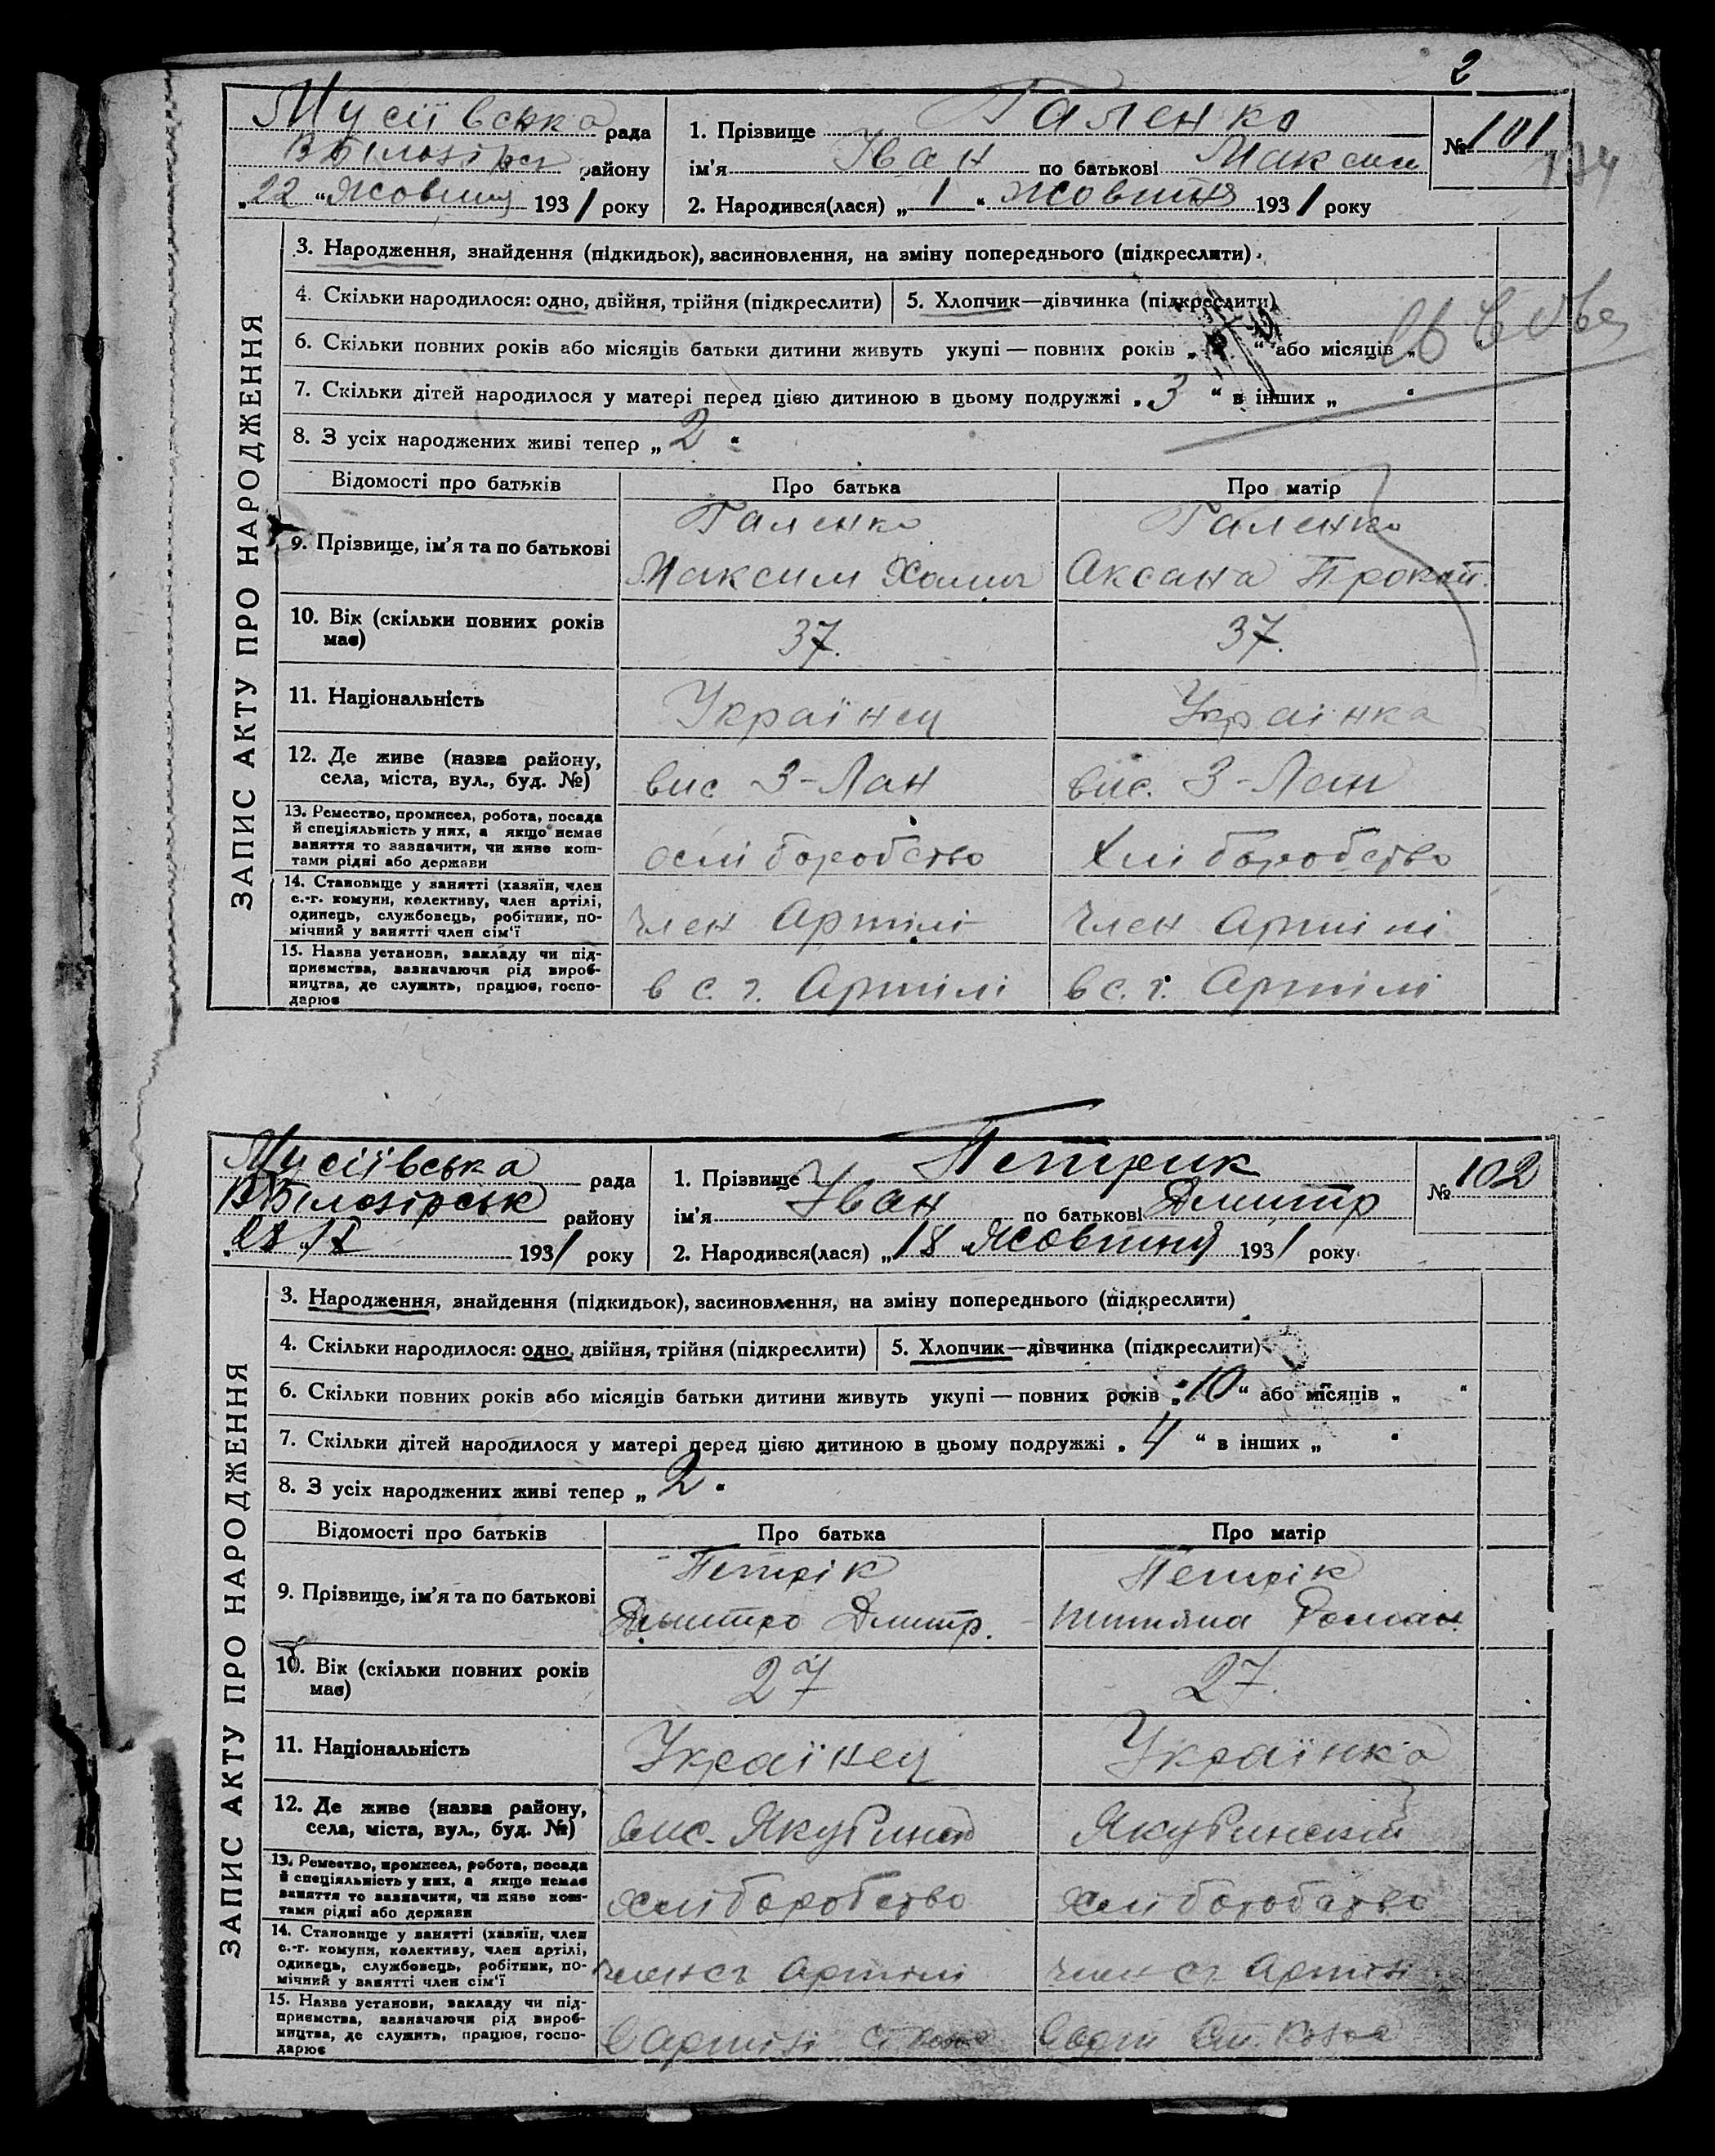 2
Мусіївська рада
В Білозірсь району
„22“ Жовтня 1931 року
1. Прізвище Галенко
ім'я Іван по батькові Максим
2. Народився(лася) „1“ Жовтня 1931 року
№ 101
174
ЗАПИС АКТУ ПРО НАРОДЖЕННЯ
3. Народження, знайдення (підкидьок), засиновлення, на зміну попереднього (підкреслити).
4. Скільки народилося: одно, двійня, трійня (підкреслити)
5. Хлопчик—дівчинка (підкреслити)
6. Скільки повних років або місяців батьки дитини живуть укупі — повних років „ “ або місяців „
7. Скільки дітей народилося у матері перед цією дитиною в цьому подружжі „3“ в інших „ “
8. З усіх народжених живі тепер „2“
Відомості про батьків Про батька Про матір
9. Прізвище, ім'я та по батькові
Галенко
Максим Хомич
Галенко
Аксана Прокоп.
10. Вік (скільки повних років
має)
37. 37.
11. Національність Українец Українка
12. Де живе (назва району,
села, міста, вул., буд. №)
вис 3-Лан вис. 3-Лан
13. Ремество, промисел, робота, посада
й спеціяльність у них, а якщо немає
заняття то зазначити, чи живе кош-
тами рідні або держави
хліборобство хліборобство
14. Становище у занятті (хазяїн, член
с.-г. комуни, колективу, член артілі,
одинець, службовець, робітник, по-
мічний у занятті член сім'ї
член Артілі член Артілі
15. Назва установи, закладу чи під-
приємства, зазначаючи рід вироб-
ництва, де служить, працює, госпо-
дарює
в с. г. Артілі в с. г. Артілі
Мусіївська рада
В Білозірськ району
„28“ X 1931 року
1. Прізвище Петрик
ім'я Іван по батькові Дмитр
2. Народився(лася) „18 Жовтня 1931 року
№ 102
ЗАПИС АКТУ ПРО НАРОДЖЕННЯ
3. Народження, знайдення (підкидьок), засиновлення, на зміну попереднього (підкреслити)
4. Скільки народилося: одно, двійня, трійня (підкреслити)
5. Хлопчик—дівчинка (підкреслити)
6. Скільки повних років або місяців батьки дитини живуть укупі — повних років „10“ або місяців „ “
7. Скільки дітей народилося у матері перед цією дитиною в цьому подружжі „4“ в інших „ “
8. З усіх народжених живі тепер „2“
Відомості про батьків Про батька Про матір
9. Прізвище, ім'я та по батькові
Петрік
Дмитро Дмитр.
Петрік
Титяна Роман.
10. Вік (скільки повних років
має)
27 27.
11. Національність Українец Українка
12. Де живе (назва району,
села, міста, вул., буд. №)
вис.
13. Ремество, промисел, робота, посада
й спеціяльність у них, а якщо немає
заняття то зазначити, чи живе кош-
тами рідні або держави
хліборобство хліборобство
14. Становище у занятті (хазяїн, член
с.-г. комуни, колективу, член артілі,
одинець, службовець, робітник, по-
мічний у занятті член сім'ї
член сг артілі член сг артілі
15. Назва установи, закладу чи під-
приємства, зазначаючи рід вироб-
ництва, де служить, працює, госпо-
дарює
В артілі